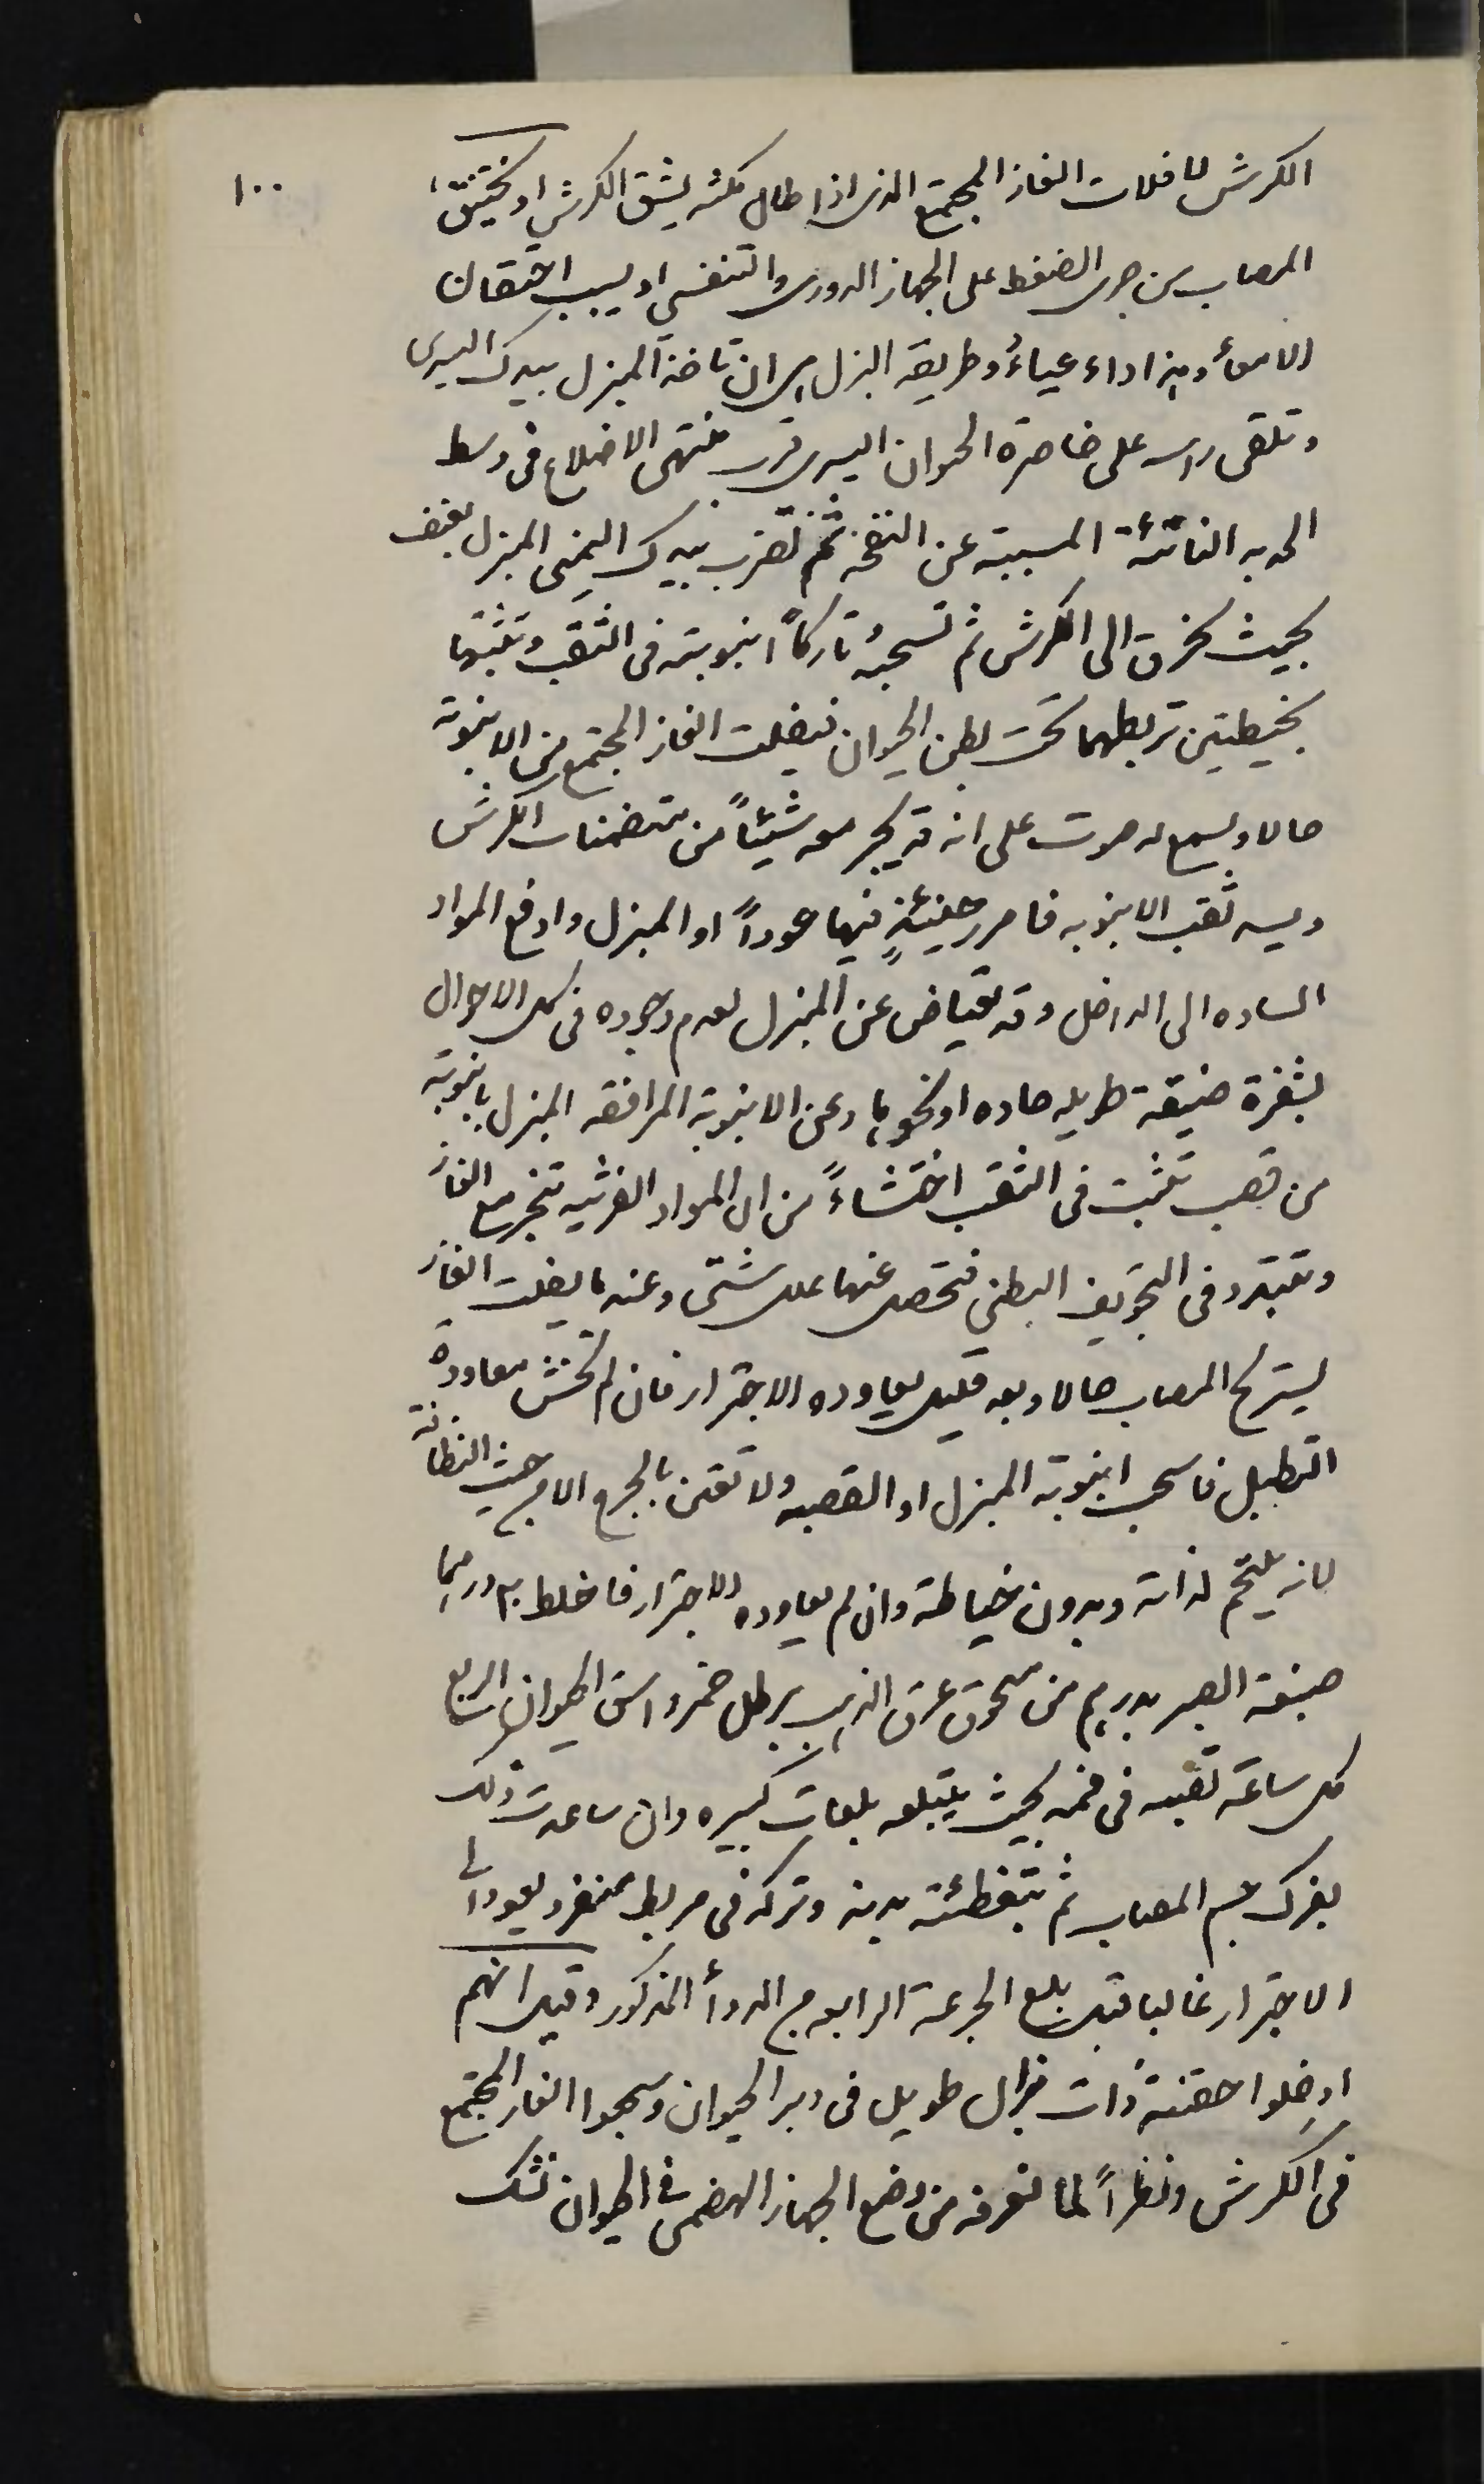 ١٠٠
الكرش لافلات الغاز المجتمع الذى اذا طال مكثه يشق الكرش او يختنق
المصاب من جرى الضغط على الجهاز الدورى والتنفسى او يسبب احتقان
الامعأ وهذا داء عياءُ وطريقة البزل هى ان تاخذ المبزل بيدك اليسرى
وتلقى راسه على خاصرة الحيوان اليسرى قرب منتهى الاضلاع فى وسط
الحدبه الناتئة المسببة عن النفخة ثم تضرب بيدك اليمنى المبزل بعنف
بحيث يخرق الى الكرش ثم تسحبه تاركاً انبوبته فى الثقب وتثبتها
بخيطتين تربطهما تحت بطن الحيوان فيفلت الغاز المجتمع من الانبوبة
حالا ويسمع له صوت على انه قد يجر معه شيئاً من متضمنات الكرش
ويسد ثقب الانبوبه فامرر حينئذٍ فيها عوداً او المبزل وادفع المواد
الساده الى الداخل وقد يعتاض عن المبزل لعدم وجوده فى كل الاحوال
بشفرة ضيقة طويله حاده او نحوها وعن الانبوبة المرافقه المبزل بانبوبة
من قصب تثبت فى الثقب اختشاءً من ان المواد الفرثيه تنجر مع الغاز
وتتبدد فى التجويف البطنى فتحصل عنها علل شتى وعندما يفلت الغاز
يستريح المصاب حالا وبعد قليل يعاوده الاجترار فان لم تخش معاودة
التطبل فاسحب انبوبة المبزل او القصبه ولا تعتن بالجرح الا من حيث النظافة
لانه يلتحم لذاته وبدون خياطة وان لم يعاوده الاجترار فاخلط درهما
صبغة الصبر بدرهم من مسحوق عرق الذهب برطل خمر واسق الحيوان الربع
كل ساعة تصبه فى فمه بحيث يبتلعه بلعات كبيره وان ساعدت ذلك
بفرك جسم المصاب ثم بتغطئة بدنه وتركه فى مربط منفرد يعود الى
الاجترار غالبا قبل بلع الجرعة الرابعه من الدوأ المذكور وقيل انهم
ادخلوا حقنة ذات بزال طويل فى دبر الحيوان وسحبوا الغاز المجتمع
فى الكرش ونظراً لما نعرفه من وضع الجهاز الهضمى فى الحيوان نشك